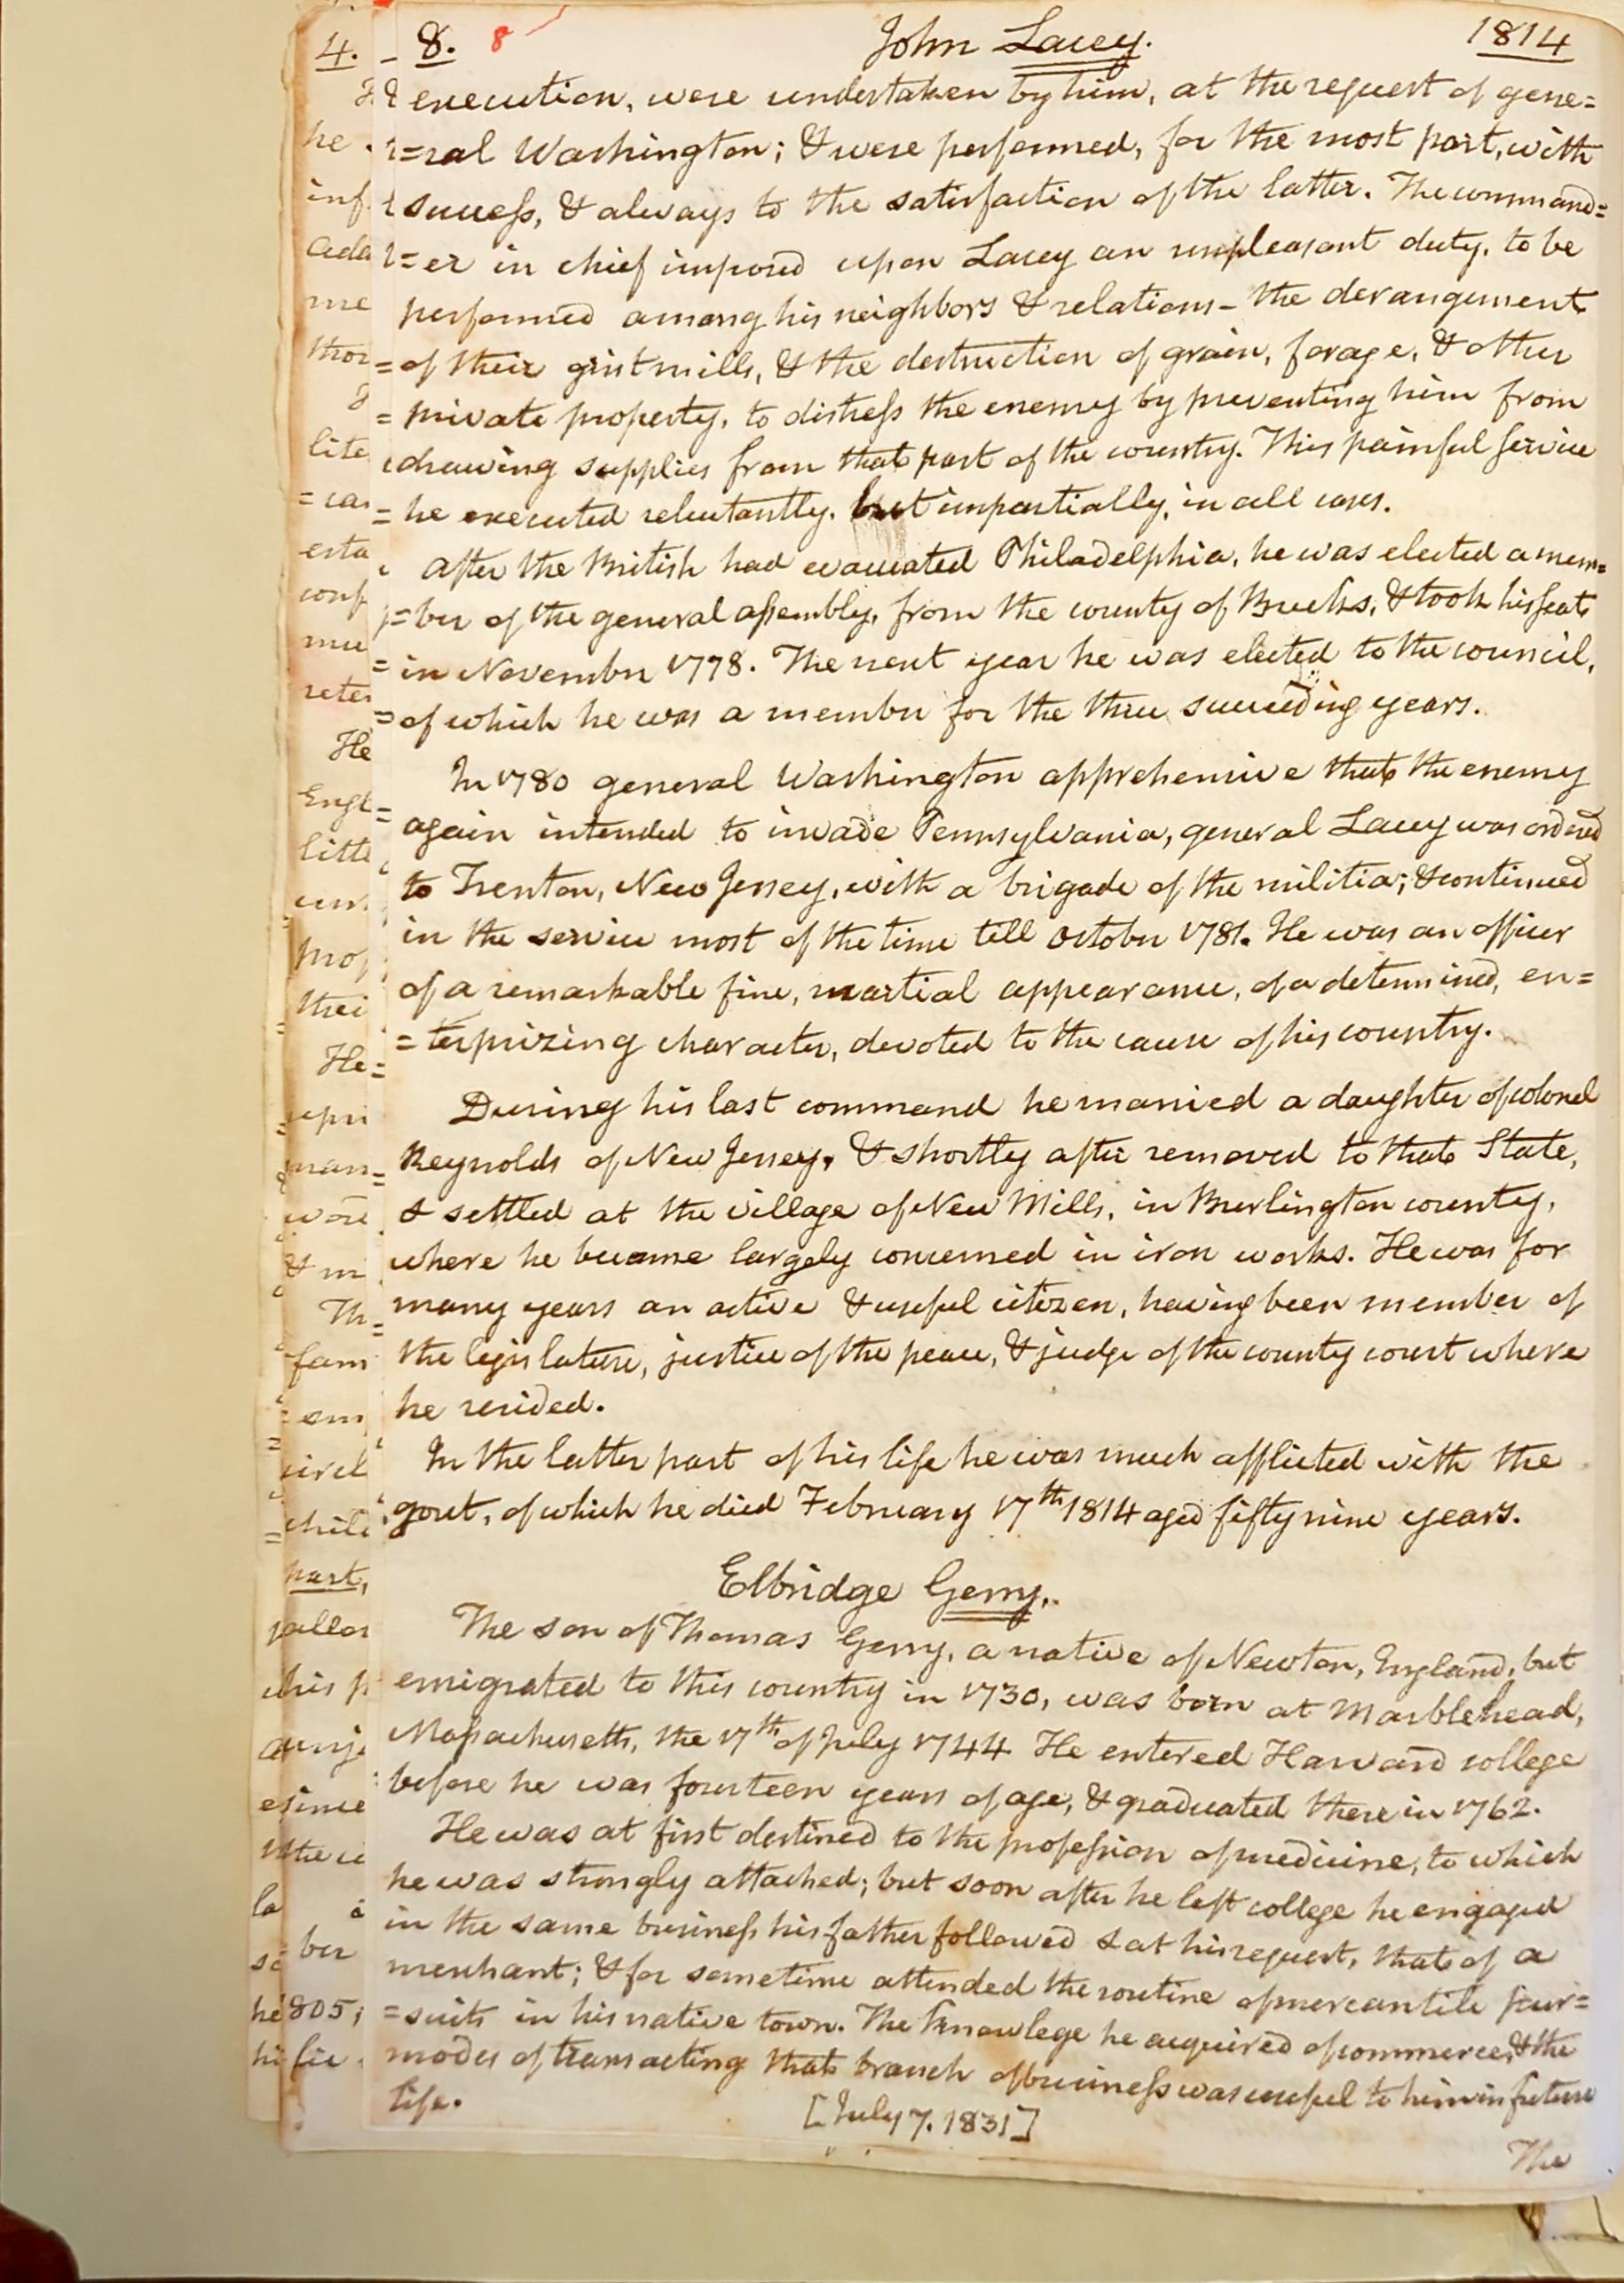 8. 8 John Lacey. 1814
execution, were undertaken by him, at the request of gene=
=ral Washington; & were performed, for the most part, with
success, & always to the satisfaction of the latter. The command=
=er in chief imposed upon Lacey an unpleasant duty, to be
performed among his neighbors & relations - the derangement
of their gristmills, & the destruction of grain, forage, & other
private property, to distress the enemy by preventing him from
drawing supplies from that part of the country. This painful service
he executed reluctantly, but impartially, in all cases.
After the British had evacuated Philadelphia, he was elected a mem=
=ber of the general assembly, from the county of Bucks, & took his seat
in November 1778. The next year he was elected to the council,
of which he was a member for the three succeeding years.
In 1780 general Washington apprehensive that the enemy
again intended to invade Pennsylvania, general Lacey was ordered
to Trenton, New Jersey, with a brigade of the militia; & continued
in the service most of the time till October 1781. He was an officer
of a remarkable fine, martial appearance, of a determined, en=
=terprizing character, devoted to the cause of his country.
During his last command he married a daughter of colonel
Reynolds of New Jersey, & shortly after removed to that State,
& settled at the village of New Mills, in Burlington county,
where he became largely concerned in iron works. He was for
many years an active & useful citizen, having been member of
the legislature, justice of the peace, & judge of the county court where
he resided.
In the latter part of his life he was much afflicted with the
gout, of which he died February 17th 1814 aged fifty nine years.
Elbridge Gerry.
The son of Thomas Gerry, a native of Newton, England, but
emigrated to this country in 1730, was born at Marblehead,
Massachusetts, the 17th of July 1744 He entered Harvard college
before he was fourteen years of age, & graduated there in 1762.
He was at first destined to the profession of medicine, to which
he was strongly attached; but soon after he left college he engaged
in the same business his father followed & at his request, that of a
merchant; & for sometime attended the routine of mercantile pur=
=suits in his native town. The knowlege he acquired of commerce, & the
modes of transacting that branch of business was useful to him in future
life.
[July 7. 1831]
The